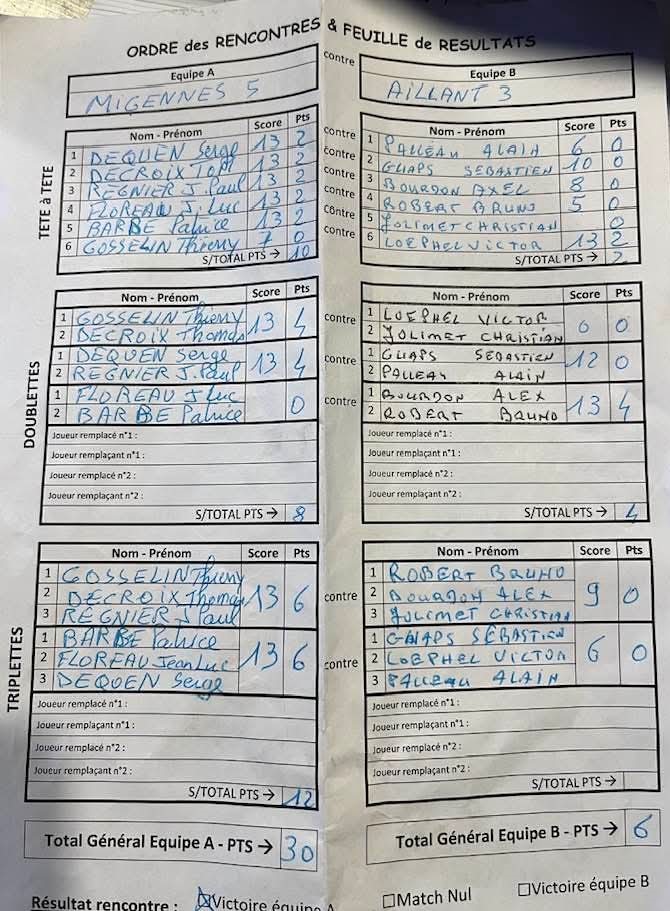 ORDRE des RENCONTRES & FEUILLE de RESULTATS
Equipe A contre Equipe B
MIGENNES 5 AILLANT 3
TETE à TETE
Nom - Prénom Score Pts contre Nom - Prénom Score Pts
1 DEQUEN Serge 13 2 contre 1 PALLEAU ALAIN 6 0
2 DECROIX Tom 13 2 contre 2 GUAPS SEBASTIEN 10 0
3 REGNIER J. Paul 13 2 contre 3 BOURDON AXEL 8 0
4 FLOREAU J. Luc 13 2 contre 4 ROBERT BRUNO 5 0
5 BARBE Patrice 13 2 contre 5 JOLIMET CHRISTIAN 0
6 GOSSELIN Thierry 7 0 contre 6 LOEPHEL VICTOR 13 2
S/TOTAL PTS → 10 S/TOTAL PTS → 2
DOUBLETTES
Nom - Prénom Score Pts Nom - Prénom Score Pts
1 GOSSELIN Thierry 13 4 contre 1 LOEPHEL VICTOR 0 0
2 DECROIX Thomas 2 JOLIMET CHRISTIAN
1 DEQUEN Serge 13 4 contre 1 GUAPS SEBASTIEN 12 0
2 REGNIER J. Paul 2 PALLEAU ALAIN
1 FLOREAU J Luc 0 contre 1 BOURDON ALEX 13 4
2 BARBE Patrice 2 ROBERT BRUNO
Joueur remplacé n°1 : Joueur remplacé n°1 :
Joueur remplaçant n°1 : Joueur remplaçant n°1 :
Joueur remplacé n°2 : Joueur remplacé n°2 :
Joueur remplaçant n°2 : Joueur remplaçant n°2 :
S/TOTAL PTS → 8 S/TOTAL PTS → 4
TRIPLETTES
Nom - Prénom Score Pts Nom - Prénom Score Pts
1 GOSSELIN Thierry 1 ROBERT BRUNO
2 DECROIX Thomas 13 6 contre 2 BOURDON ALEX 9 0
3 REGNIER J Paul 3 JOLIMET CHRISTIAN
1 BARBE Patrice 1 GUAPS SÉBASTIEN
2 FLOREAU Jean Luc 13 6 contre 2 LOEPHEL VICTOR 6 0
3 DEQUEN Serge 3 PALLEAU ALAIN
Joueur remplacé n°1 : Joueur remplacé n°1 :
Joueur remplaçant n°1 : Joueur remplaçant n°1 :
Joueur remplacé n°2 : Joueur remplacé n°2 :
Joueur remplaçant n°2 : Joueur remplaçant n°2 :
S/TOTAL PTS → 12 S/TOTAL PTS →
Total Général Equipe A - PTS → 30 Total Général Equipe B - PTS → 6
Résultat rencontre : ☒Victoire équipe A ☐Match Nul ☐Victoire équipe B